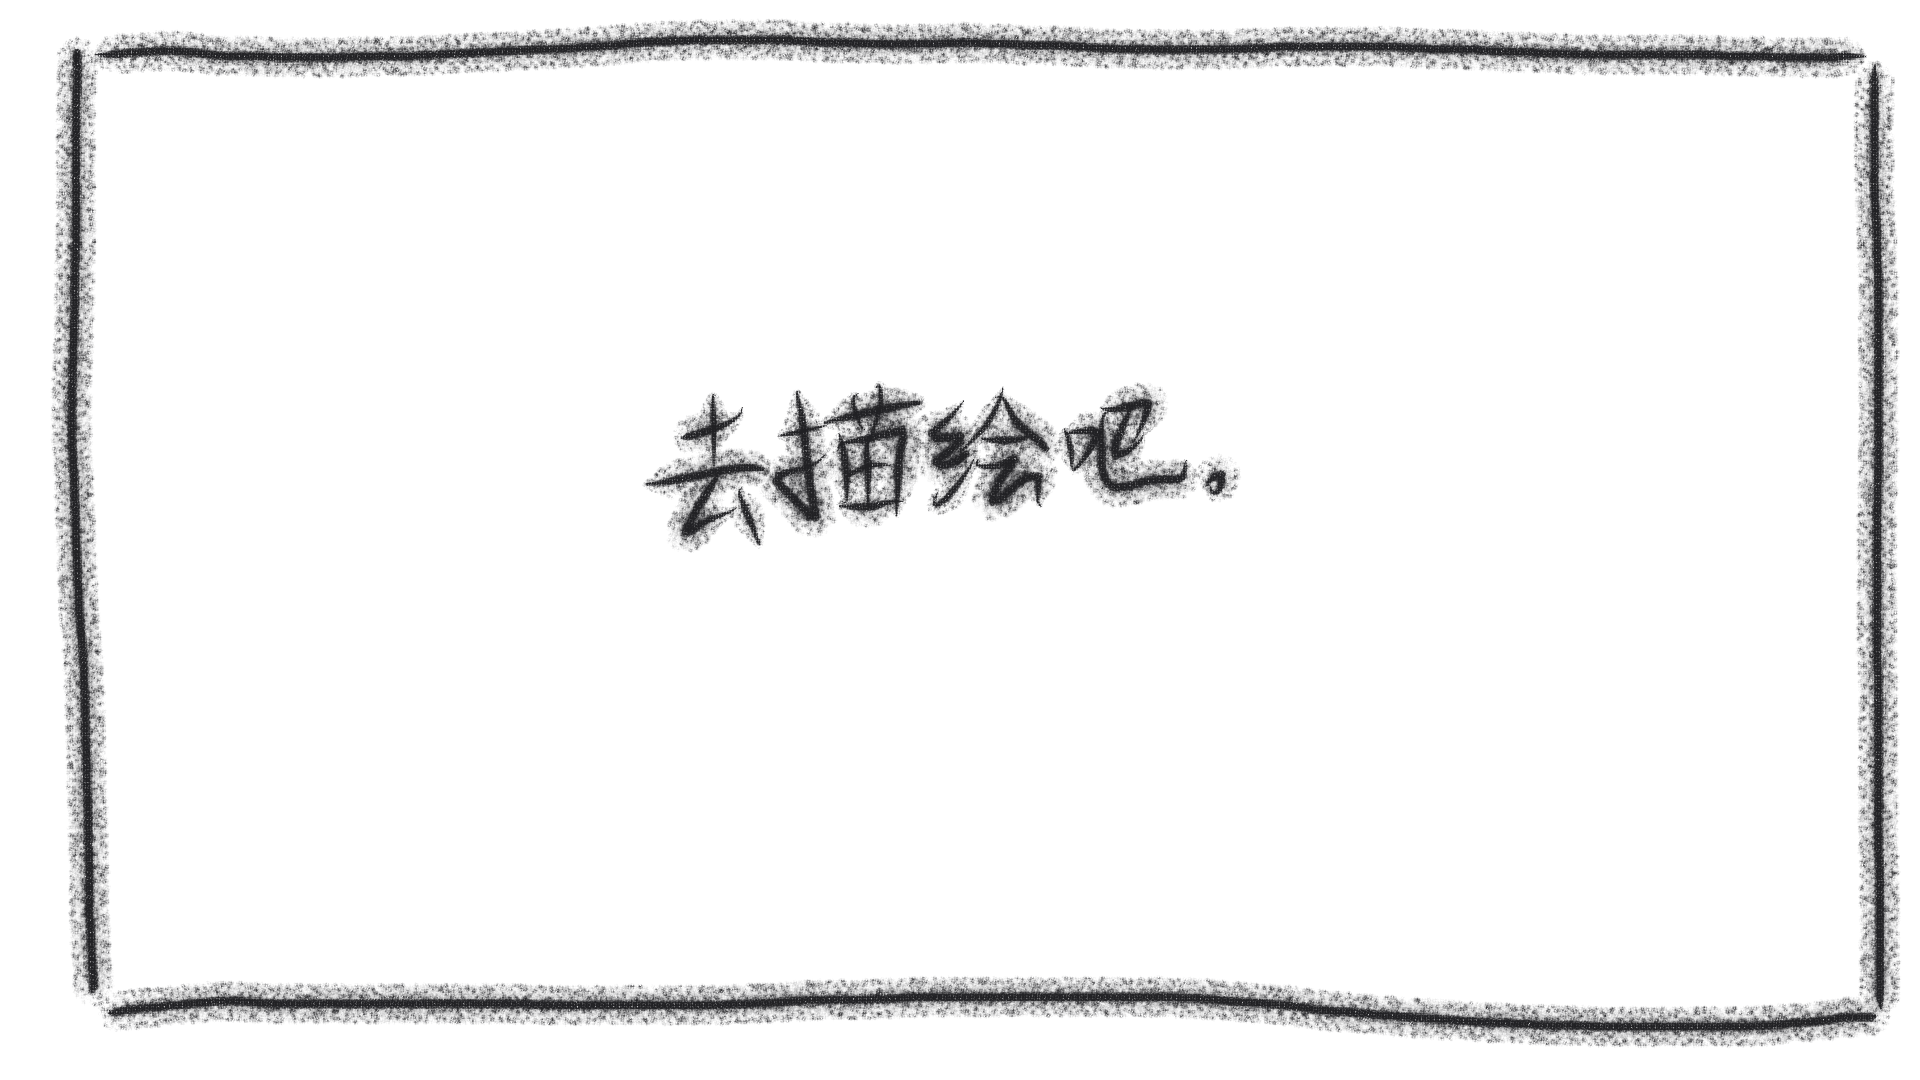 去描绘吧。